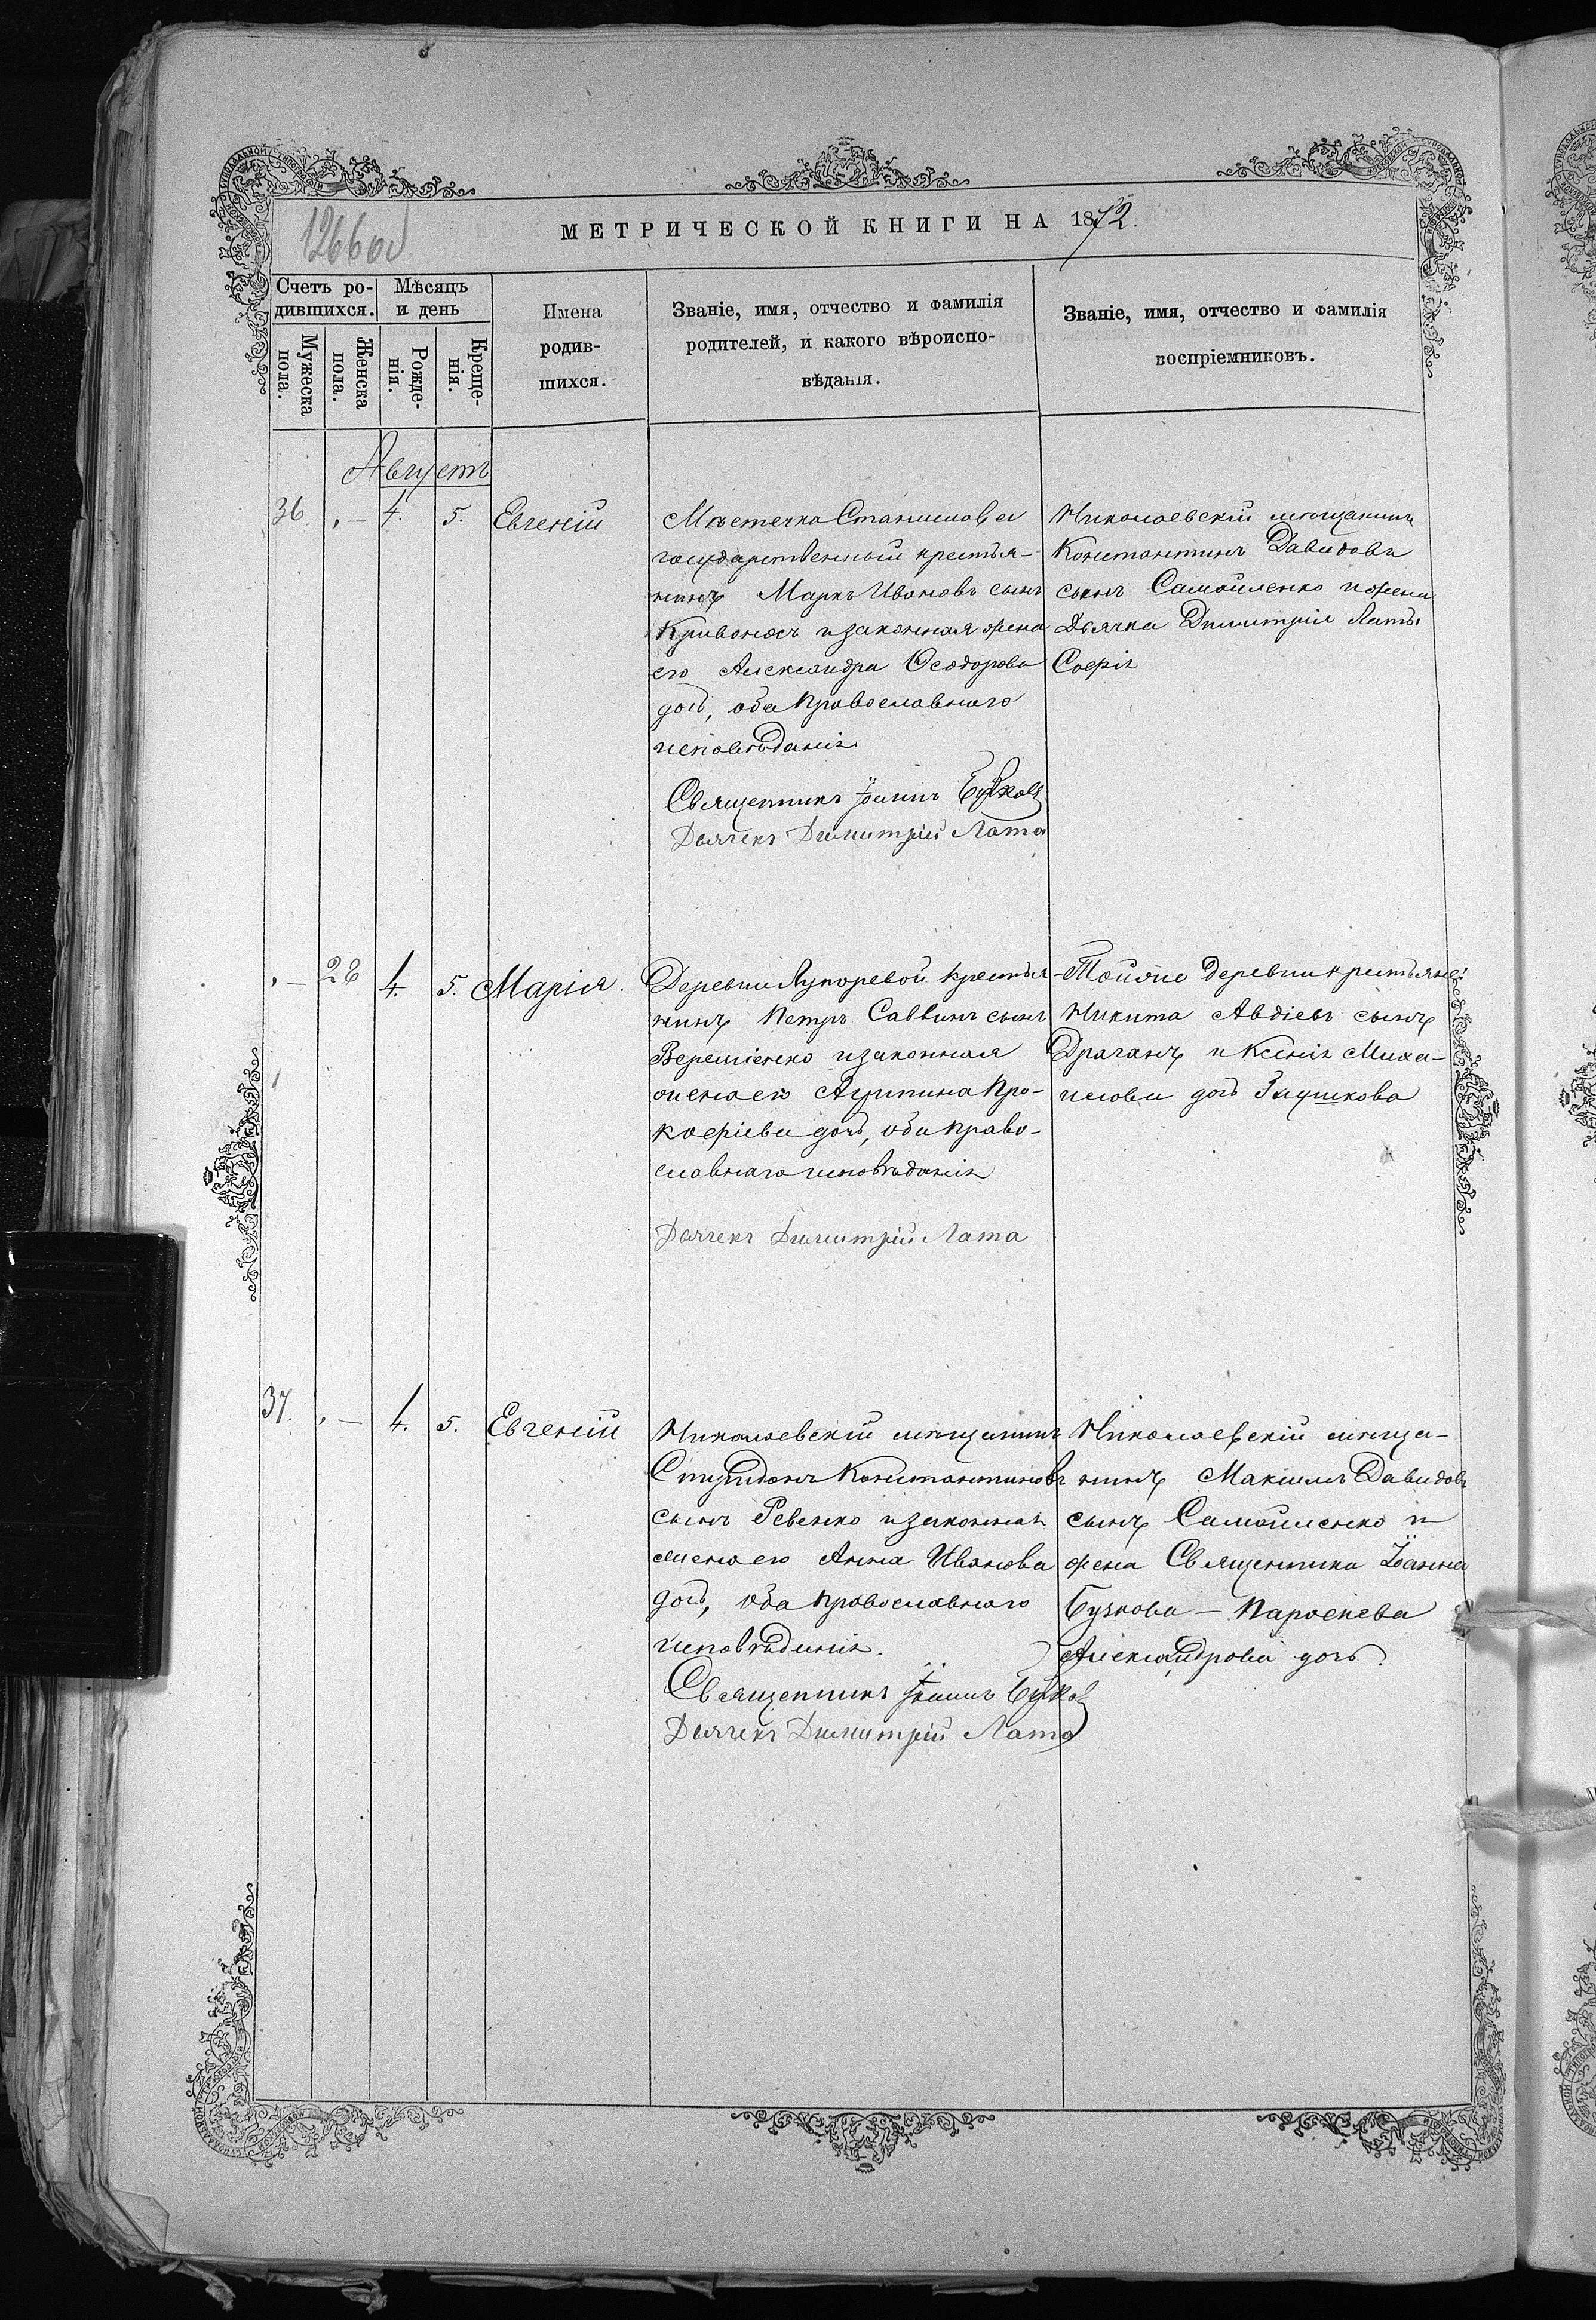 1266 об
МЕТРИЧЕСКОЙ КНИГИ НА 1872.
Счетъ ро-
дившихся.
Мѣсяцъ
и день
Мужеска
пола.
Женска
пола.
Рожде-
нія.
Креще-
нія.
Имена
родив-
шихся.
Званіе, имя, отчество и фамилія
родителей, и какого вѣроиспо-
вѣданія.
Званіе, имя, отчество и фамилія
воспріемниковъ.
Августъ
36 „ — 4. 5. Евгеній
Мѣстечка Станислова
государственный крестья-
нинъ Маркъ Ивановъ сынъ
Кривоносъ и законная жена
его Александра Ѳеодорова
дочь, оба православнаго
исповѣданія
Священникъ Іоаннъ Бучковъ
Дьячекъ Димитрій Лата
Николаевскій мѣщанинъ
Константинъ Давидовъ
сынъ Самойленко и жена
Дьячка Димитрія Латы
Софія
„ — 28 4. 5. Марія.
Деревни Лупоревой крестья-
нинъ Петръ Саввинъ сынъ
Верещенко и законная
жена его Агрипина Про-
кофіева дочь, оба право-
славнаго исповѣданія
Дьячекъ Димитрій Лата
Той же деревни крестьяне:
Никита Авдіевъ сынъ
Драганъ и Ксенія Миха-
илова дочь Глушкова
37. „ — 4. 5. Евгеній
Николаевскій мѣщанинъ
Спиридонъ Константиновъ
сынъ Ревенко и законная
жена его Анна Иванова
дочь, оба православнаго
исповѣданія.
Священникъ Іоаннъ Бучковъ
Дьячекъ Димитрій Лата
Николаевскій мѣща-
нинъ Максимъ Давидовъ
сынъ Самойленко и
жена Священника Іоанна
Бучкова — Параскева
Александрова дочь.